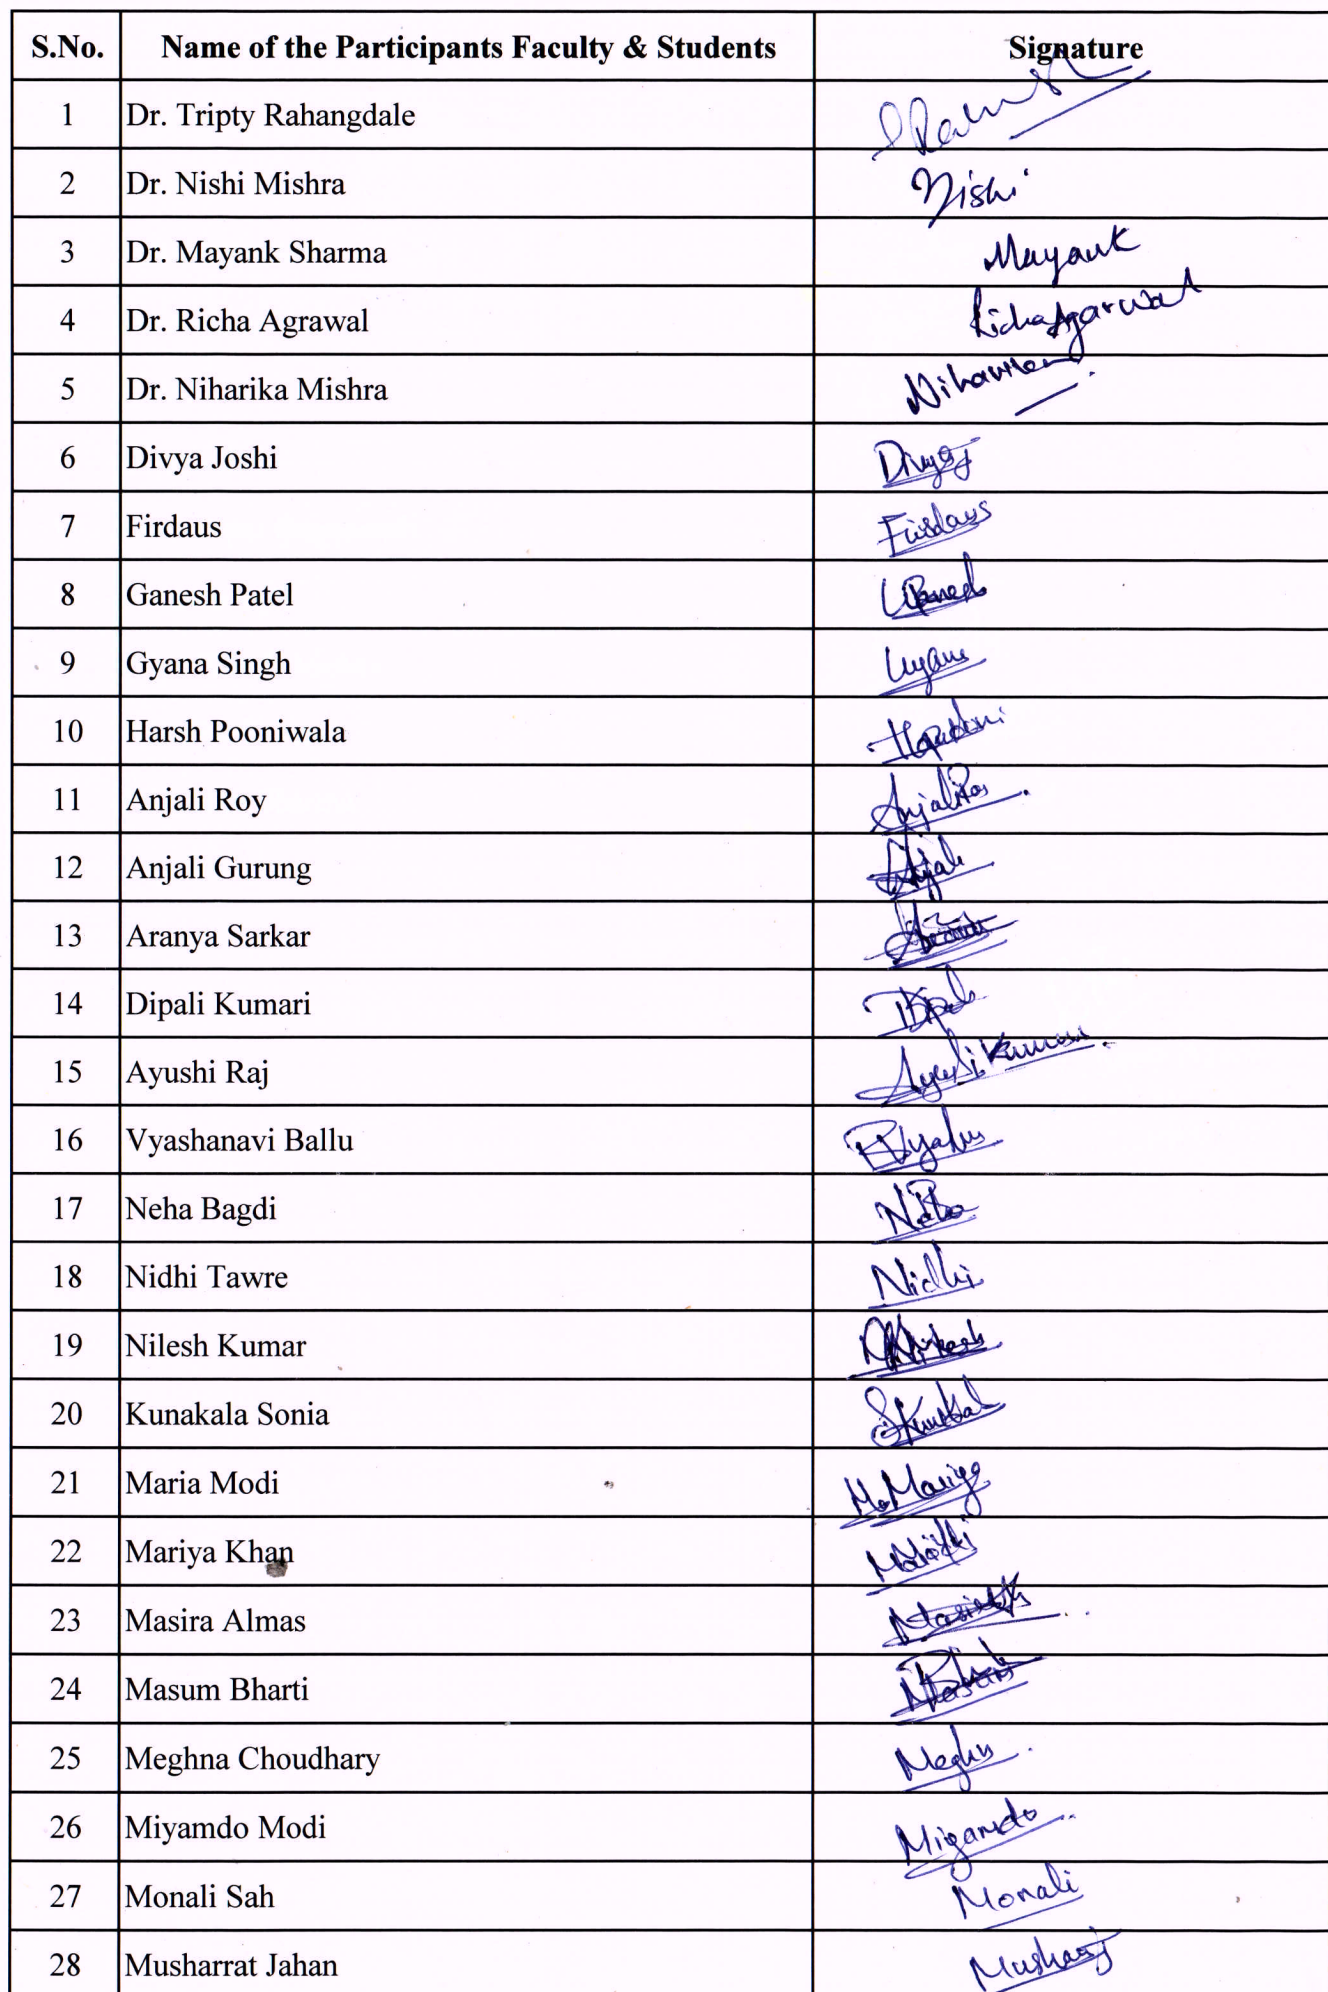 S.No. Name of the Participants Faculty & Students Signature
1 Dr. Tripty Rahangdale
2 Dr. Nishi Mishra Nishi
3 Dr. Mayank Sharma Mayank
4 Dr. Richa Agrawal Richa Agarwal
5 Dr. Niharika Mishra
6 Divya Joshi DivyaJ
7 Firdaus Firdaus
8 Ganesh Patel
9 Gyana Singh
10 Harsh Pooniwala
11 Anjali Roy Anjali Roy
12 Anjali Gurung Anjali
13 Aranya Sarkar
14 Dipali Kumari
15 Ayushi Raj Ayushi Kumari
16 Vyashanavi Ballu
17 Neha Bagdi
18 Nidhi Tawre Nidhi
19 Nilesh Kumar
20 Kunakala Sonia
21 Maria Modi
22 Mariya Khan
23 Masira Almas
24 Masum Bharti
25 Meghna Choudhary
26 Miyamdo Modi Miyamdo
27 Monali Sah Monali
28 Musharrat Jahan